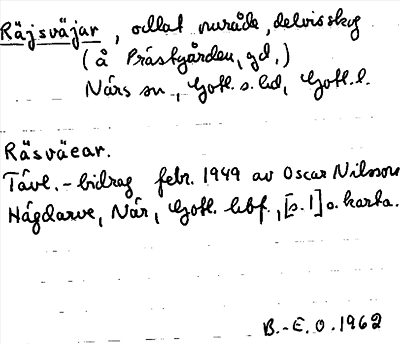 Räjsväjar, odlat område, delvis skog
(å Prästgården, gd,)
Närs sn., Gotl. s. hd, Gotl. l.
Räsväear.
Tävl.-bidrag febr. 1949 av Oscar Nilsson
Hägdarve, När, Gotl. hbf., [s. 1] o. karta.
B.-E. O. 1962